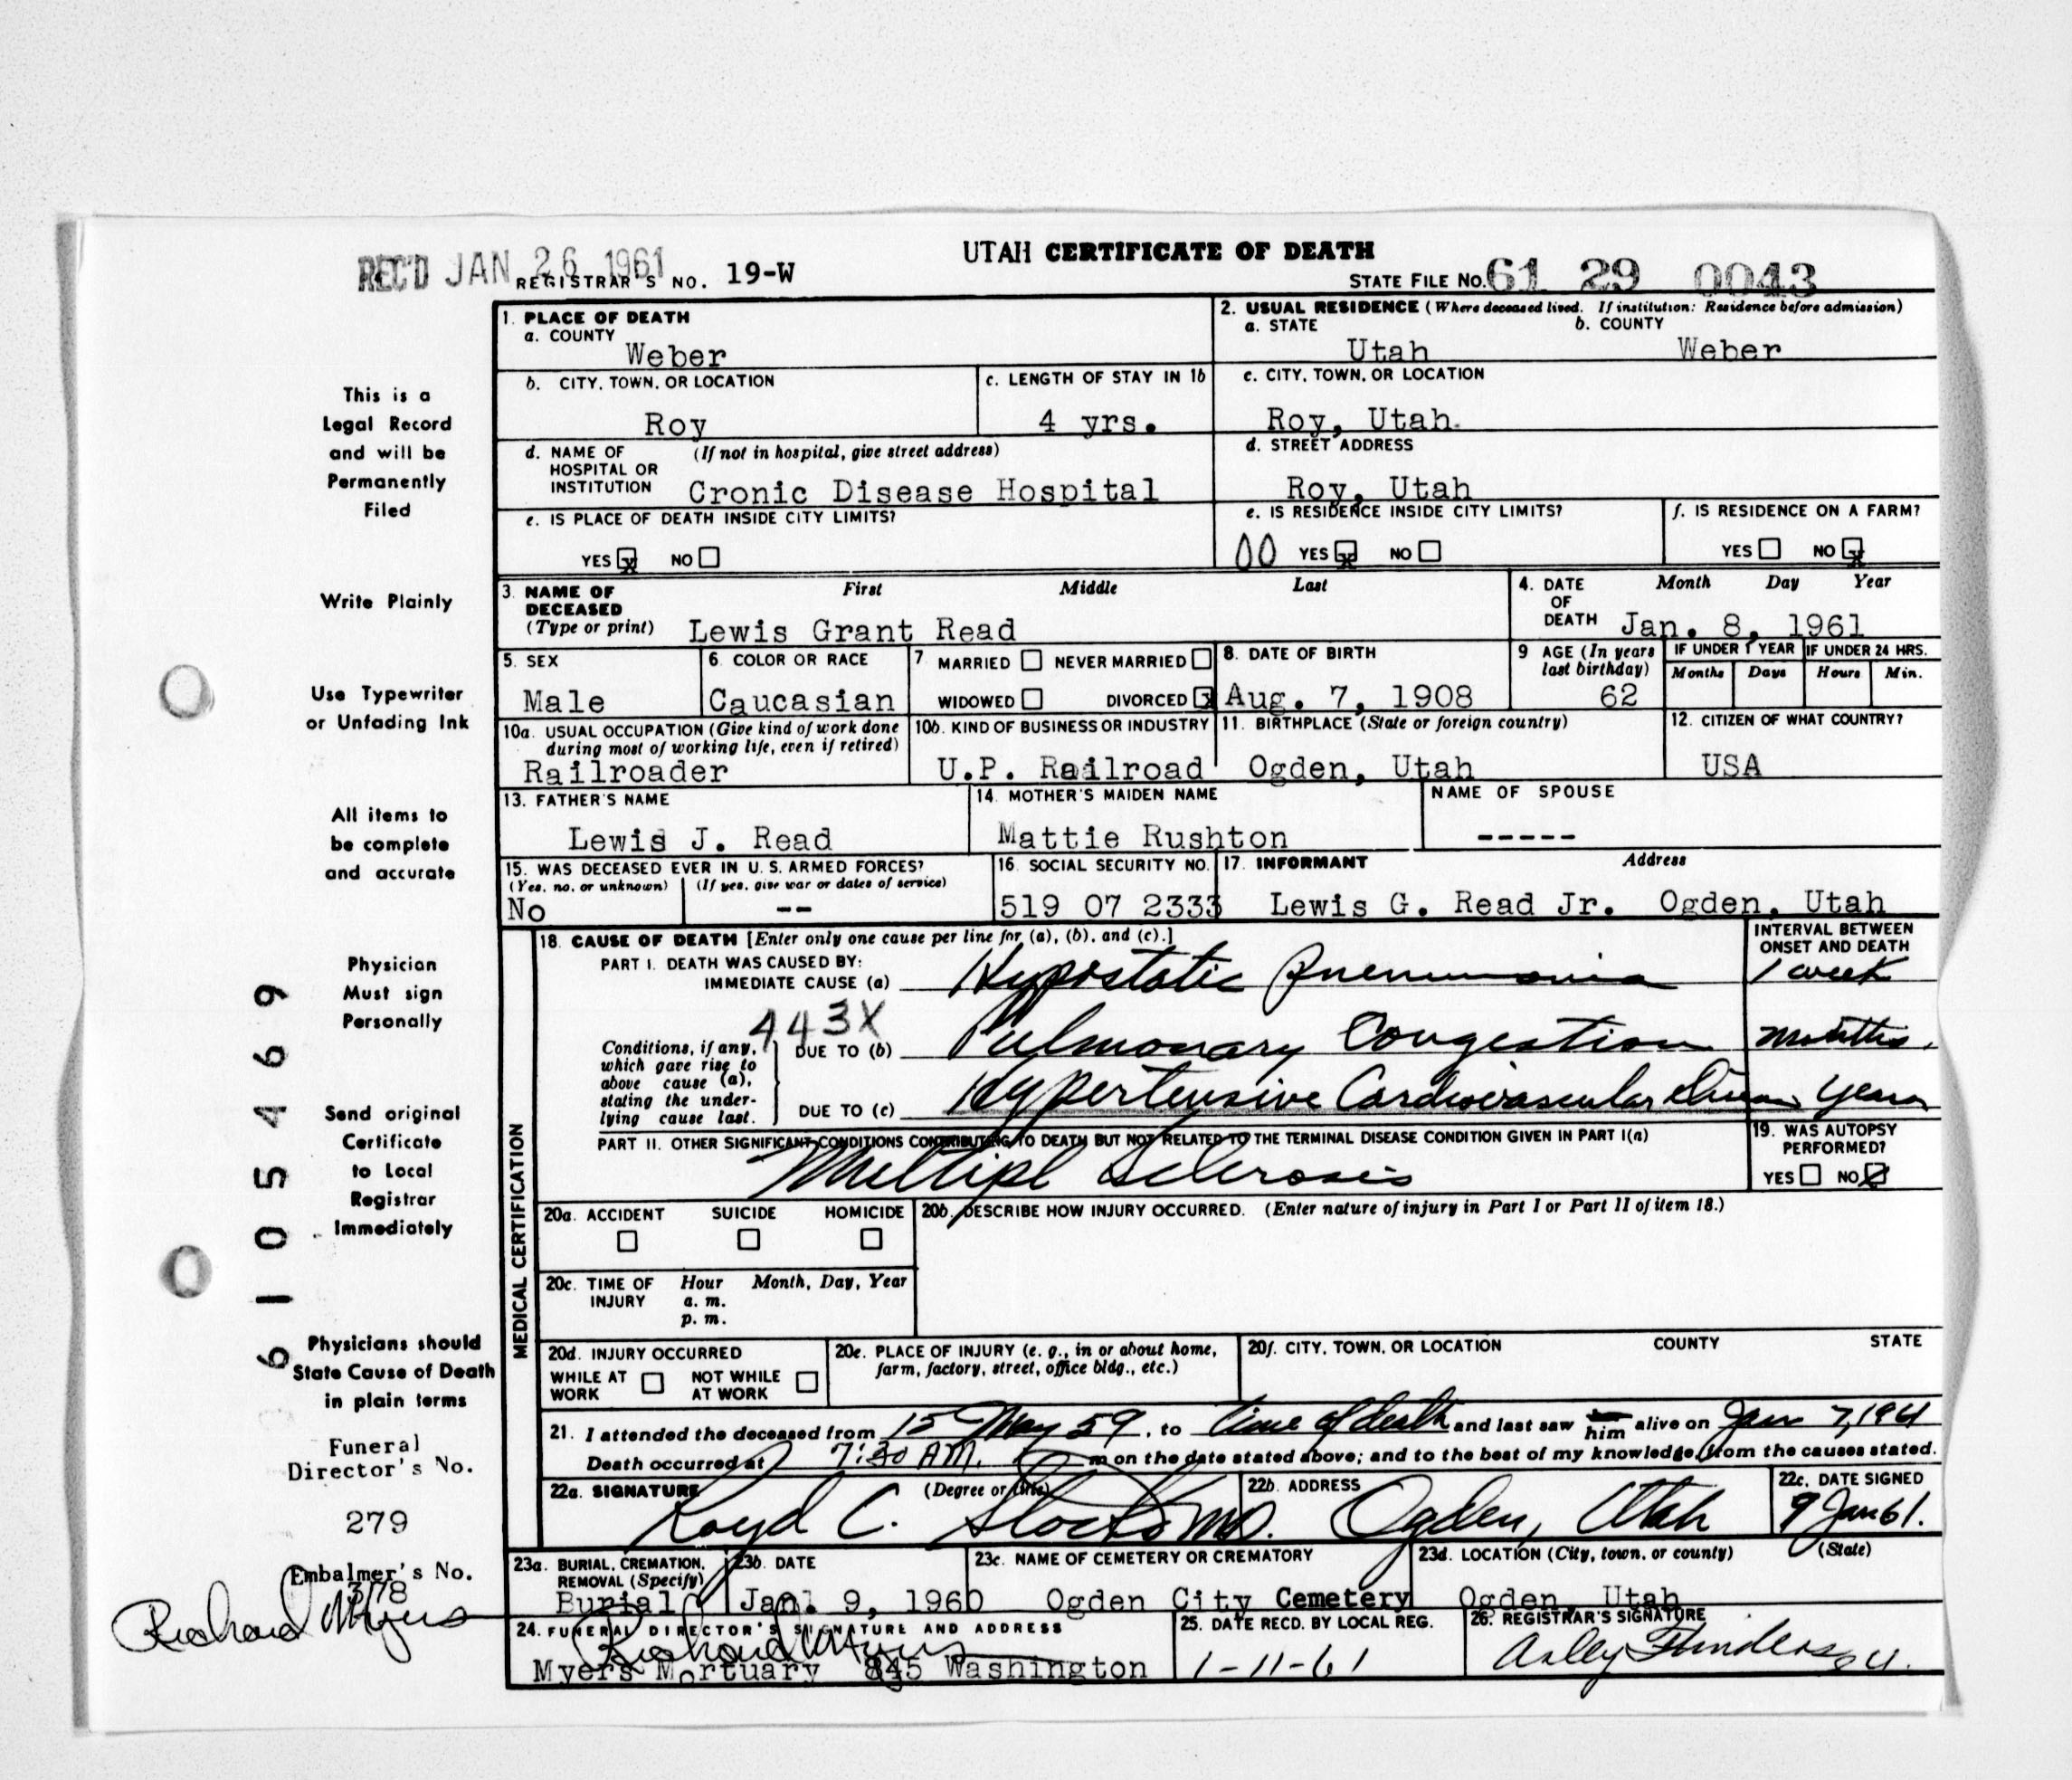 UTAH CERTIFICATE OF DEATH
REC'D JAN 26 1961 REGISTRAR'S NO. 19-W STATE FILE NO. 61 29 0043
1. PLACE OF DEATH
a. COUNTY
Weber
2. USUAL RESIDENCE (Where deceased lived. If institution: Residence before admission)
a. STATE b. COUNTY
Utah Weber
b. CITY, TOWN, OR LOCATION
Roy
c. LENGTH OF STAY IN 1b
4 yrs.
c. CITY, TOWN, OR LOCATION
Roy, Utah.
d. NAME OF (If not in hospital, give street address)
HOSPITAL OR
INSTITUTION Cronic Disease Hospital
d. STREET ADDRESS
Roy, Utah
e. IS PLACE OF DEATH INSIDE CITY LIMITS?
YES x NO
e. IS RESIDENCE INSIDE CITY LIMITS?
00 YES x NO
f. IS RESIDENCE ON A FARM?
YES NO x
3. NAME OF First Middle Last
DECEASED
(Type or print) Lewis Grant Read
4. DATE Month Day Year
OF
DEATH Jan. 8, 1961
5. SEX
Male
6. COLOR OR RACE
Caucasian
7 MARRIED NEVER MARRIED
WIDOWED DIVORCED x
8. DATE OF BIRTH
Aug. 7, 1908
9 AGE (In years
last birthday)
62
IF UNDER 1 YEAR IF UNDER 24 HRS.
Months Days Hours Min.
10a. USUAL OCCUPATION (Give kind of work done
during most of working life, even if retired)
Railroader
10b. KIND OF BUSINESS OR INDUSTRY
U.P. Railroad
11. BIRTHPLACE (State or foreign country)
Ogden, Utah
12. CITIZEN OF WHAT COUNTRY?
USA
13. FATHER'S NAME
Lewis J. Read
14. MOTHER'S MAIDEN NAME
Mattie Rushton
NAME OF SPOUSE
-----
15. WAS DECEASED EVER IN U. S. ARMED FORCES?
(Yes, no, or unknown) (If yes, give war or dates of service)
No --
16. SOCIAL SECURITY NO.
519 07 2333
17. INFORMANT Address
Lewis G. Read Jr. Ogden, Utah
MEDICAL CERTIFICATION
18. CAUSE OF DEATH [Enter only one cause per line for (a), (b), and (c).]
INTERVAL BETWEEN
ONSET AND DEATH
PART I. DEATH WAS CAUSED BY:
IMMEDIATE CAUSE (a) Hypostatic Pneumonia 1 week
443X
Conditions, if any,
which gave rise to
above cause (a),
stating the under-
lying cause last.
DUE TO (b) Pulmonary Congestion months.
DUE TO (c) Hypertensive Cardiovascular Disease years
PART II. OTHER SIGNIFICANT CONDITIONS CONTRIBUTING TO DEATH BUT NOT RELATED TO THE TERMINAL DISEASE CONDITION GIVEN IN PART I(a)
Multipl Sclerosis
19. WAS AUTOPSY
PERFORMED?
YES NO x
20a. ACCIDENT SUICIDE HOMICIDE
20b. DESCRIBE HOW INJURY OCCURRED. (Enter nature of injury in Part I or Part II of item 18.)
20c. TIME OF Hour Month, Day, Year
INJURY a. m.
p. m.
20d. INJURY OCCURRED
WHILE AT NOT WHILE
WORK AT WORK
20e. PLACE OF INJURY (e. g., in or about home,
farm, factory, street, office bldg., etc.)
20f. CITY, TOWN, OR LOCATION COUNTY STATE
21. I attended the deceased from 15 May 59, to time of death and last saw him alive on Jan 7, 1961
Death occurred at 7:30 AM. m on the date stated above; and to the best of my knowledge, from the causes stated.
22a. SIGNATURE (Degree or title)
Loyd C. MD.
22b. ADDRESS
Ogden, Utah
22c. DATE SIGNED
9 Jan 61.
23a. BURIAL, CREMATION,
REMOVAL (Specify)
Burial
23b. DATE
Jan. 9, 1960
23c. NAME OF CEMETERY OR CREMATORY
Ogden City Cemetery
23d. LOCATION (City, town, or county) (State)
Ogden, Utah
24. FUNERAL DIRECTOR'S SIGNATURE AND ADDRESS
Richard Myers
Myers Mortuary 845 Washington
25. DATE RECD. BY LOCAL REG.
1-11-61
26. REGISTRAR'S SIGNATURE
This is a
Legal Record
and will be
Permanently
Filed
Write Plainly
Use Typewriter
or Unfading Ink
All items to
be complete
and accurate
Physician
Must sign
Personally
Send original
Certificate
to Local
Registrar
Immediately
Physicians should
State Cause of Death
in plain terms
Funeral
Director's No.
279
Embalmer's No.
378
Richard Myers
6105469